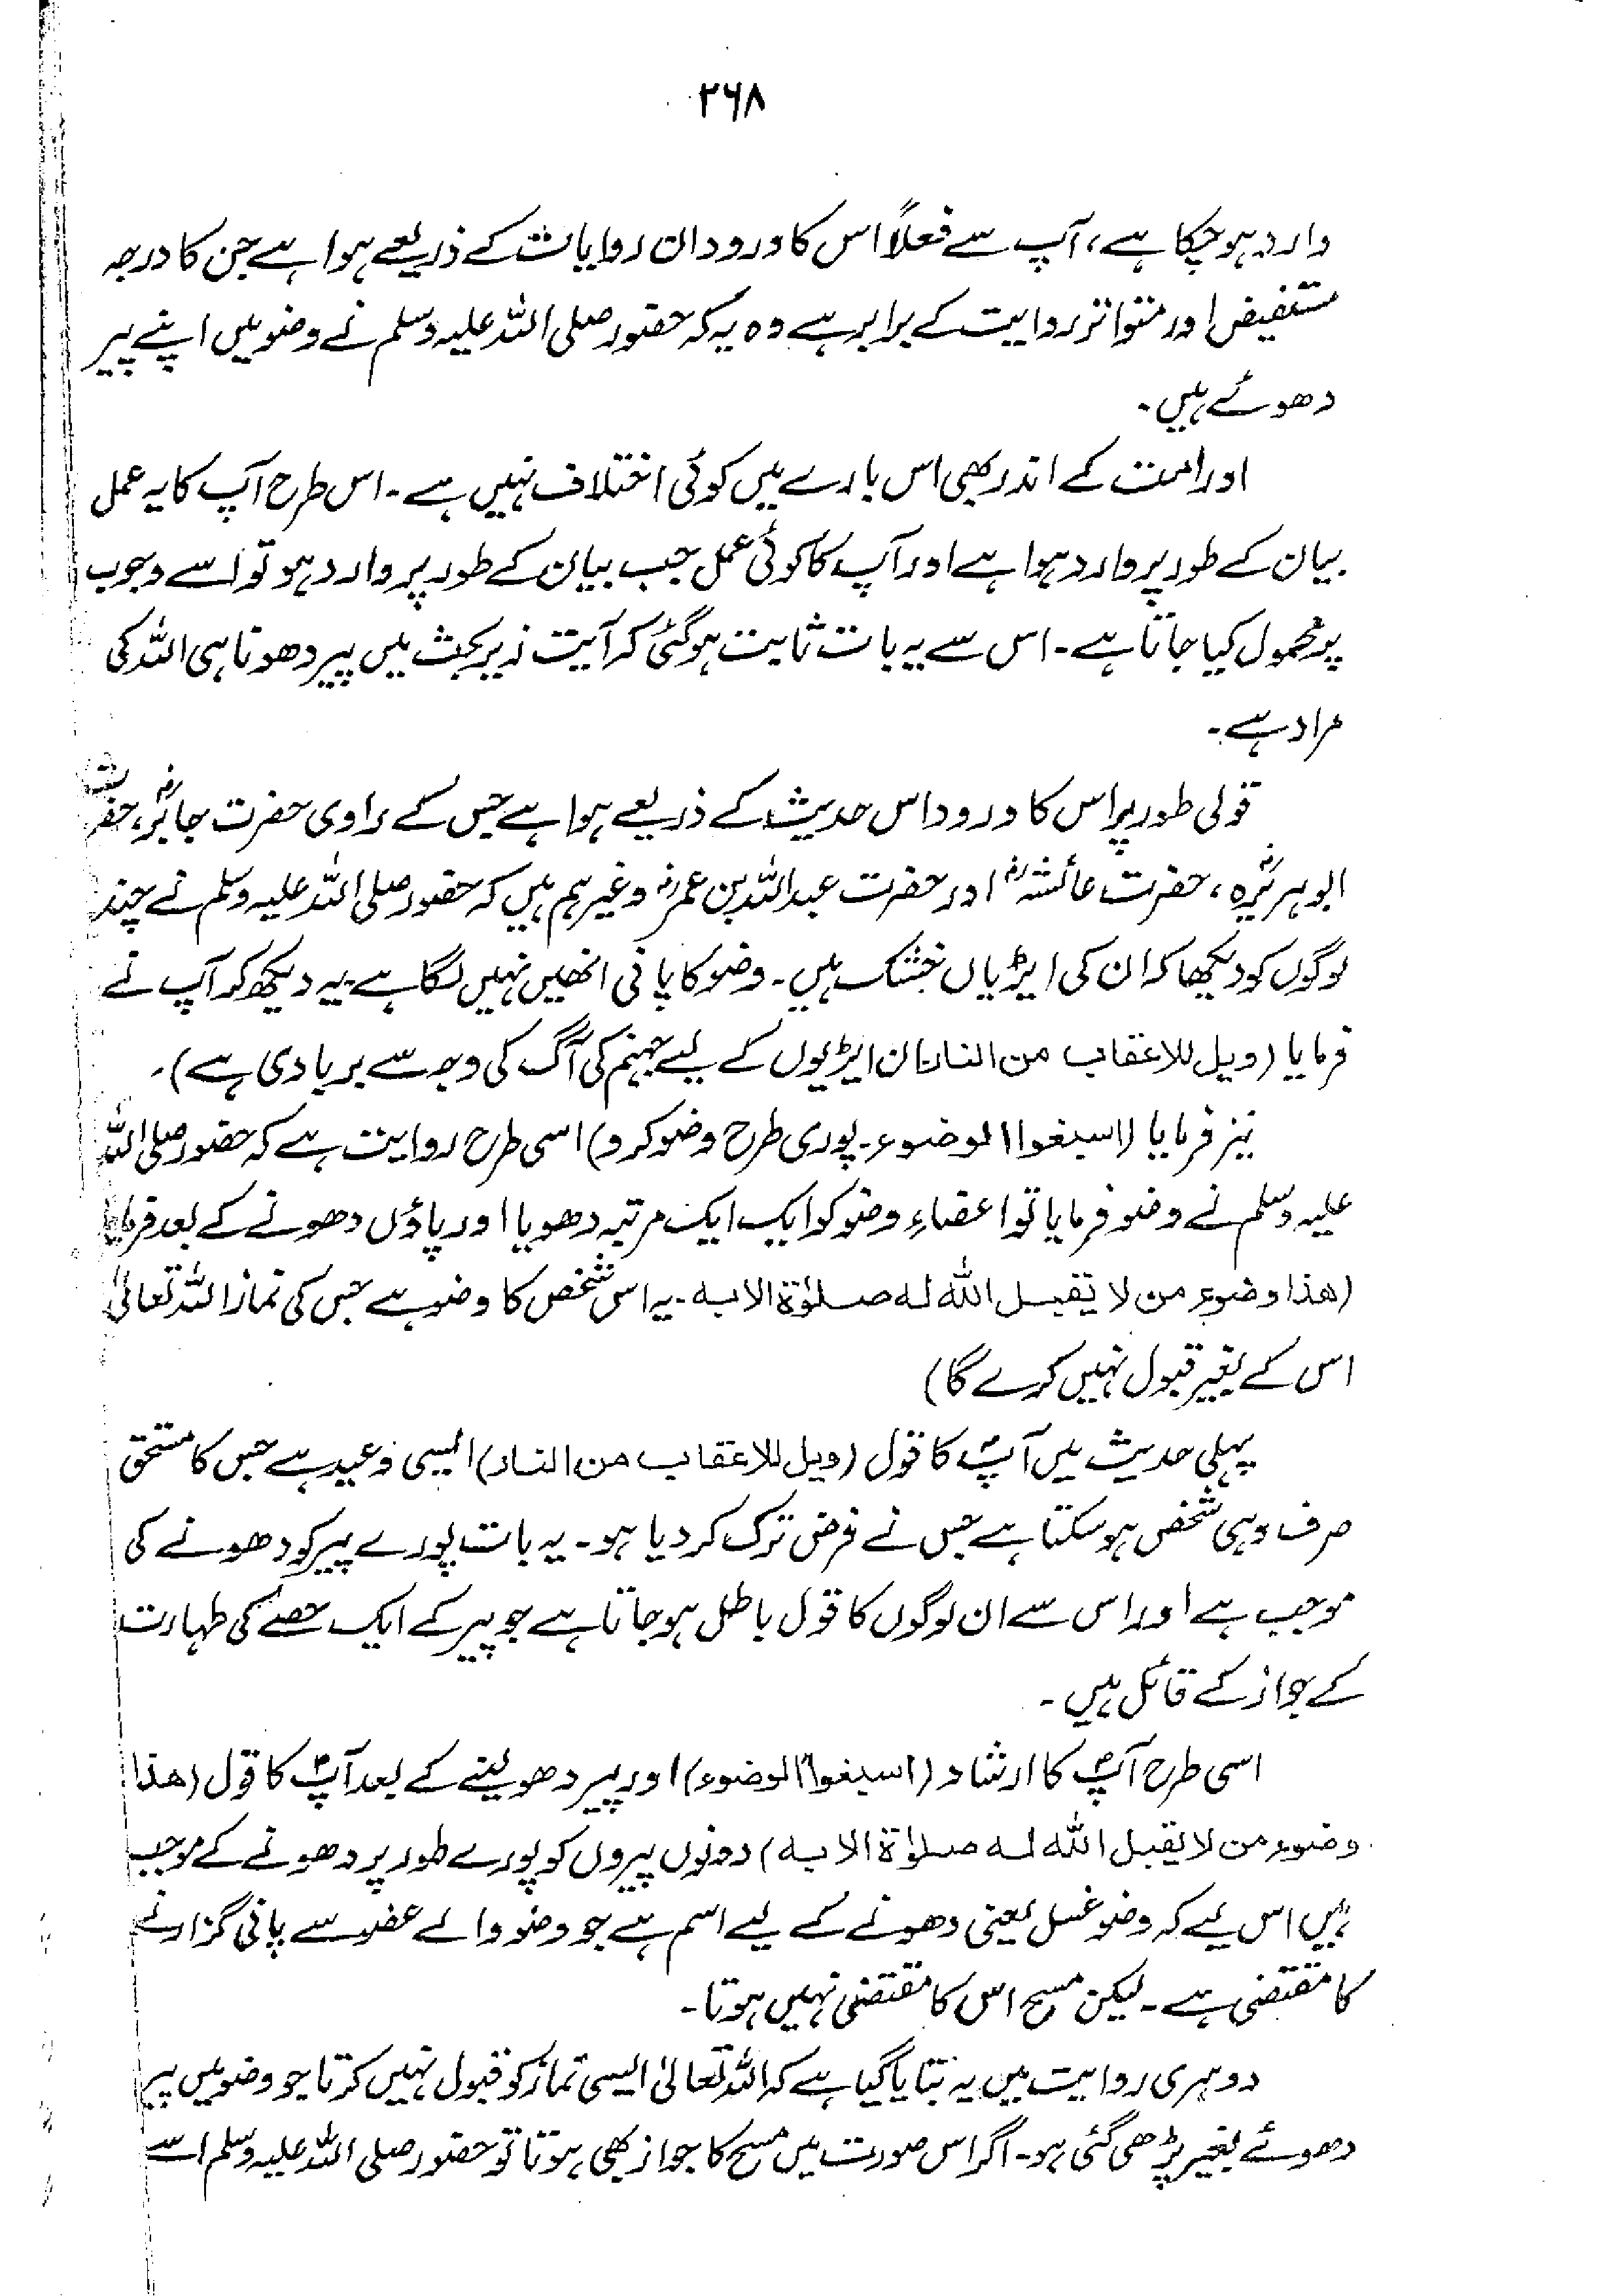 ۲۶۸
وارد ہو چکا ہے، آپ سے فعلاً اس کا ورود ان روایات کے ذریعے ہوا ہے جن کا درجہ
مستفیض اور متواتر روایت کے برابر ہے وہ یہ کہ حضور صلی اللہ علیہ وسلم نے وضو میں اپنے پیر
دھوئے ہیں۔
اور امت کے اندر بھی اس بارے میں کوئی اختلاف نہیں ہے۔ اس طرح آپ کا یہ عمل
بیان کے طور پر وارد ہوا ہے اور آپ کا کوئی عمل جب بیان کے طور پر وارد ہو تو اسے وجوب
پر محمول کیا جاتا ہے۔ اس سے یہ بات ثابت ہو گئی کہ آیت زیر بحث میں پیر دھونا ہی اللہ کی
مراد ہے۔
قولی طور پر اس کا ورود اس حدیث کے ذریعے ہوا ہے جس کے راوی حضرت جابرؓ، حضرت
ابو ہریرہؓ، حضرت عائشہؓ اور حضرت عبداللہ بن عمرؓ وغیرہم ہیں کہ حضور صلی اللہ علیہ وسلم نے چند
لوگوں کو دیکھا کہ ان کی ایڑیاں خشک ہیں۔ وضو کا پانی انھیں نہیں لگا ہے یہ دیکھ کر آپ نے
فرمایا (ویل للاعقاب من النار ان ایڑیوں کے لیے جہنم کی آگ کی وجہ سے بربادی ہے)۔
نیز فرمایا (اسبغوا الوضوء۔ پوری طرح وضو کرو) اسی طرح روایت ہے کہ حضور صلی اللہ
علیہ وسلم نے وضو فرمایا تو اعضاءِ وضو کو ایک ایک مرتبہ دھویا اور پاؤں دھونے کے بعد فرمایا
(هذا وضوء من لا يقبل الله له صلوٰة الا به۔ یہ اس شخص کا وضو ہے جس کی نماز اللہ تعالیٰ
اس کے بغیر قبول نہیں کرے گا)
پہلی حدیث میں آپؐ کا قول (ویل للاعقاب من النار) ایسی وعید ہے جس کا مستحق
صرف وہی شخص ہو سکتا ہے جس نے فرض ترک کر دیا ہو۔ یہ بات پورے پیر کو دھونے کی
موجب ہے اور اس سے ان لوگوں کا قول باطل ہو جاتا ہے جو پیر کے ایک حصے کی طہارت
کے جواز کے قائل ہیں۔
اسی طرح آپؐ کا ارشاد (اسبغوا الوضوء) اور پیر دھو لینے کے بعد آپؐ کا قول (هذا
وضوء من لا يقبل الله له صلوٰة الا به) دونوں پیروں کو پورے طور پر دھونے کے موجب
ہیں اس لیے کہ وضو غسل یعنی دھونے کے لیے اسم ہے جو وضو والے عضو سے پانی گزارنے
کا مقتضی ہے۔ لیکن مسح اس کا مقتضی نہیں ہوتا۔
دوسری روایت میں یہ بتایا گیا ہے کہ اللہ تعالیٰ ایسی نماز کو قبول نہیں کرتا جو وضو میں پیر
دھوئے بغیر پڑھی گئی ہو۔ اگر اس صورت میں مسح کا جواز بھی ہوتا تو حضور صلی اللہ علیہ وسلم اسے